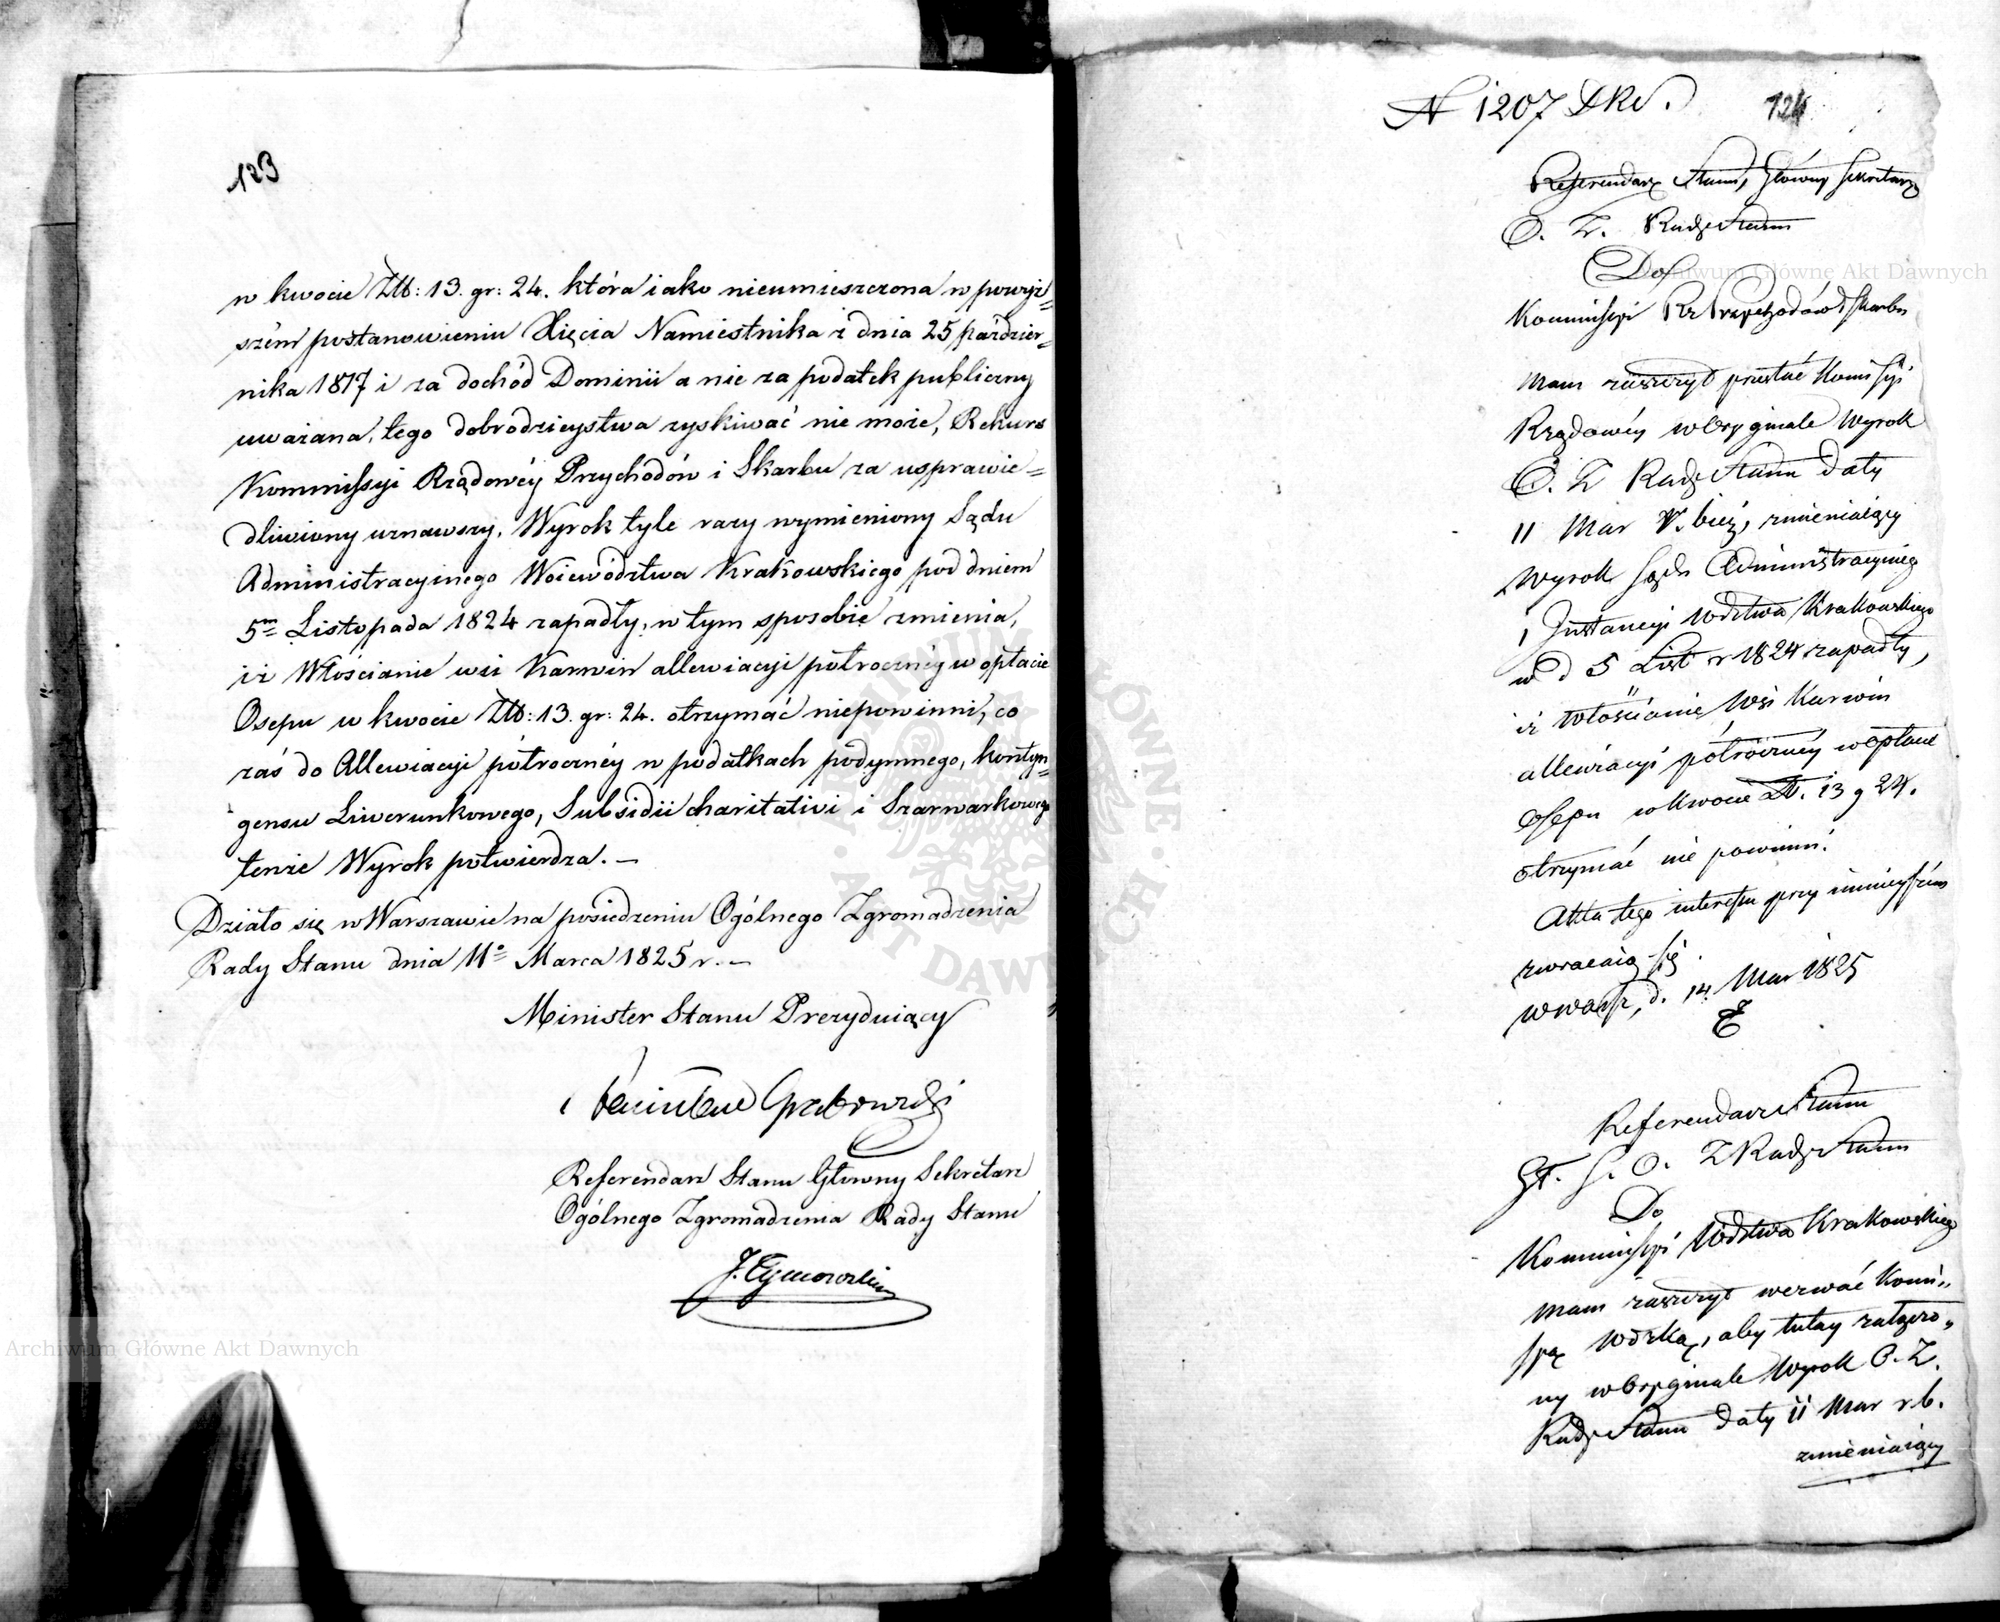 123
w kwocie Złt: 13. gr: 24. która iako nieumieszczona w powyż=
szém postanowieniu Xięcia Namiestnika z dnia 25 paździer=
nika 1817 i za dochód Dominii a nie za podatek publiczny
uważana, tego dobrodzieystwa zyskiwać nie może, Rekurs
Kommissyi Rządowéy Przychodów i Skarbu za usprawie=
dliwiony uznawszy, Wyrok tyle razy wymieniony Sądu
Administracyinego Woiewództwa Krakowskiego pod dniem
5m Listopada 1824 zapadły, w tym sposobie zmienia,
iż Włościanie wsi Karwin allewiacyi półroczney w opłacie
Osepu w kwocie Złt: 13. gr: 24. otrzymać niepowinni, co
zaś do Allewiacyi półrocznéy w podatkach podymnego, kontyn=
gensu Liwerunkowego, Subsidii charitativi i Szarwarkowego
tenże Wyrok potwierdza. —
Działo się w Warszawie na posiedzeniu Ogólnego Zgromadzenia
Rady Stanu dnia 11o Marca 1825 r. —
Minister Stanu Prezyduiący
Grabowski
Referendarz Stanu Główny Sekretarz
Ogólnego Zgromadzenia Rady Stanu
J. Tymowski
N 1207 124
Referendarz Stanu, Główny Sekretarz
O. Z. Rady Stanu
Do
Kommissyi Rz Przychodów i Skarbu
Mam zaszczyt przesłać Komissyi
Rządowéy w Oryginale Wyrok
O. Z Rady Stanu daty
11 Mar r. bież, zmieniaiący
Wyrok Sądu Administracyinego
1 Instancyi Wdztwa Krakowskiego
w d 5 List r 1824 zapadły,
iż Włościanie Wsi Karwin
allewiacyi półroczney w opłacie
Osepu w kwocie Zł. 13 g 24.
otrzymać nie powinni.
Akta tego interessu przy ninieyszém
zwracaią się.
w Warsz, d. 14 Mar 1825
Referendarz Stanu
Gł. S. O. Z Rady Stanu
Do
Kommissyi Wdztwa Krakowskiego
Mam zaszczyt wezwać Komi„
ssyą Wdzką, aby tutay załączo„
ny w Oryginale Wyrok O. Z.
Rady Stanu daty 11 Mar r b.
zmieniaiący
Archiwum Główne Akt Dawnych
Archiwum Główne Akt Dawnych
ARCHIWUM GŁÓWNE · AKT DAWNYCH ·